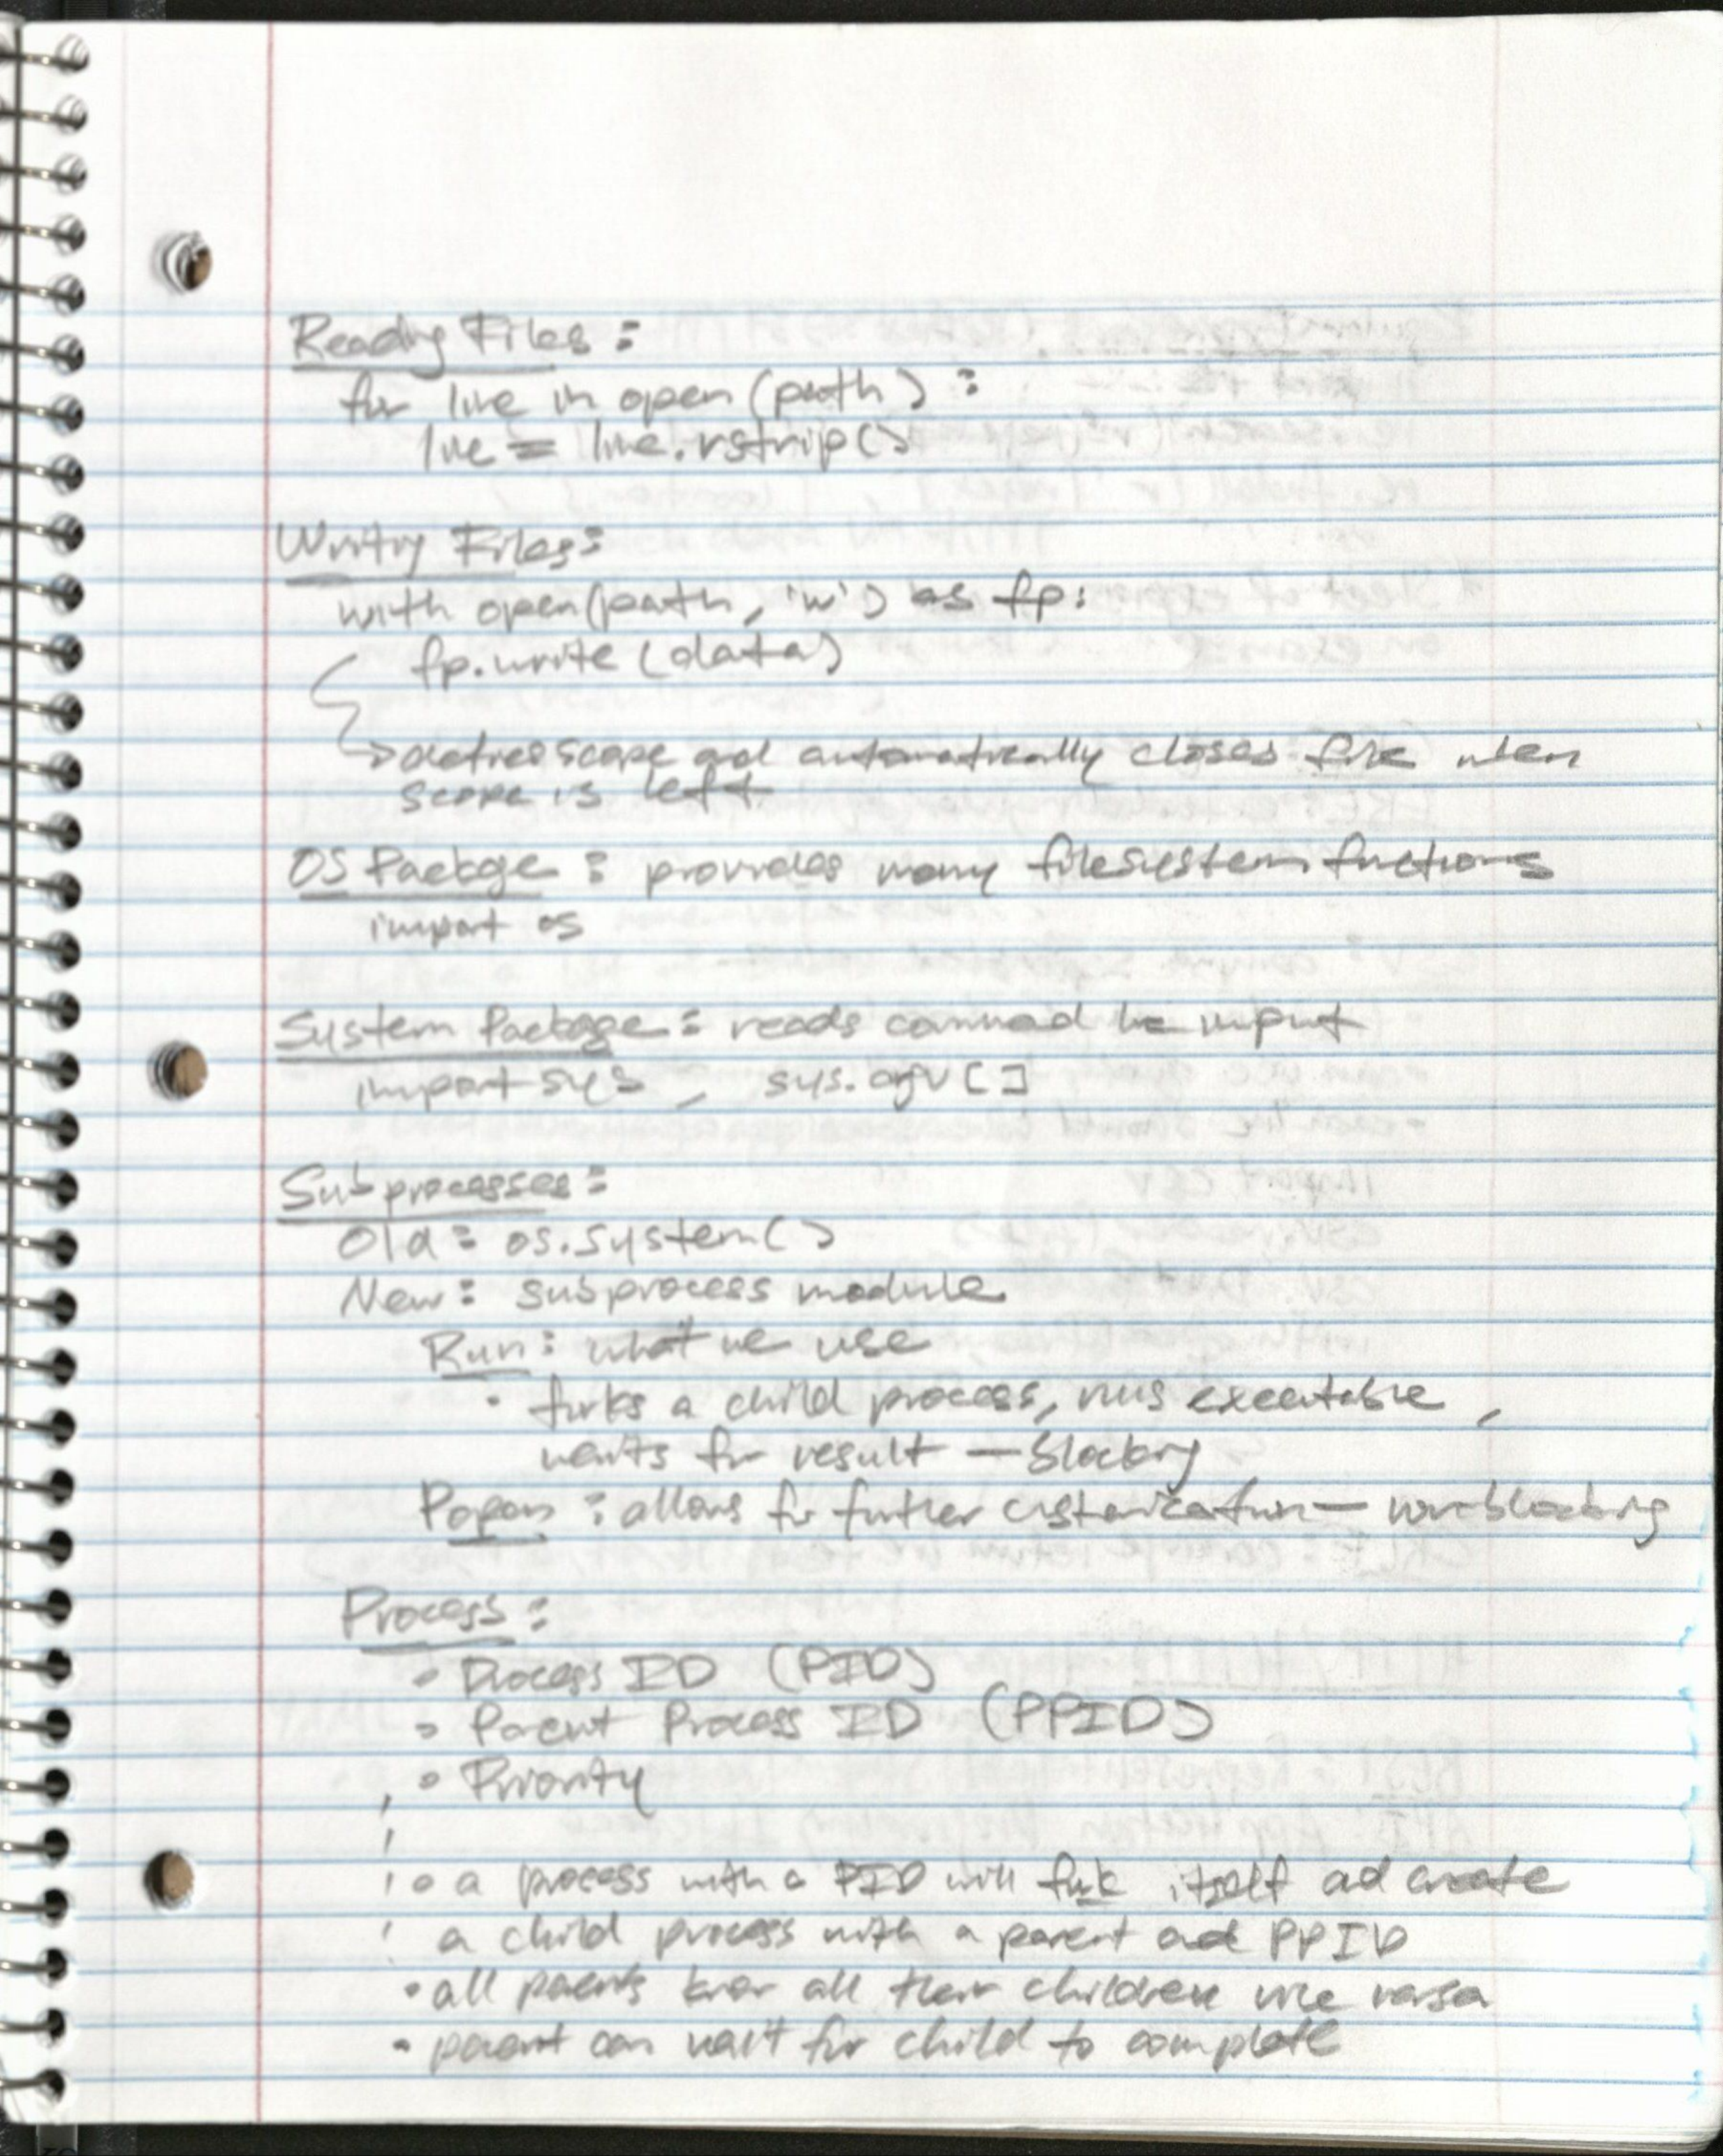 Reading Files:
for line in open(path):
line = line.rstrip()
Writing Files:
with open(path, 'w') as fp:
fp.write(data)
→ defines scope and automatically closes file when
scope is left
OS Package: provides many filesystem functions
import os
System Package: reads command line input
import sys, sys.argv[]
Subprocesses:
Old: os.system()
New: subprocess module
Run: what we use
• forks a child process, runs executable,
waits for result — blocking
Popen: allows for further customization — non-blocking
Process:
• Process ID (PID)
• Parent Process ID (PPID)
• Priority
• a process with a PID will fork itself and create
a child process with a parent and PPID
• all parents know all their children vice versa
• parent can wait for child to complete